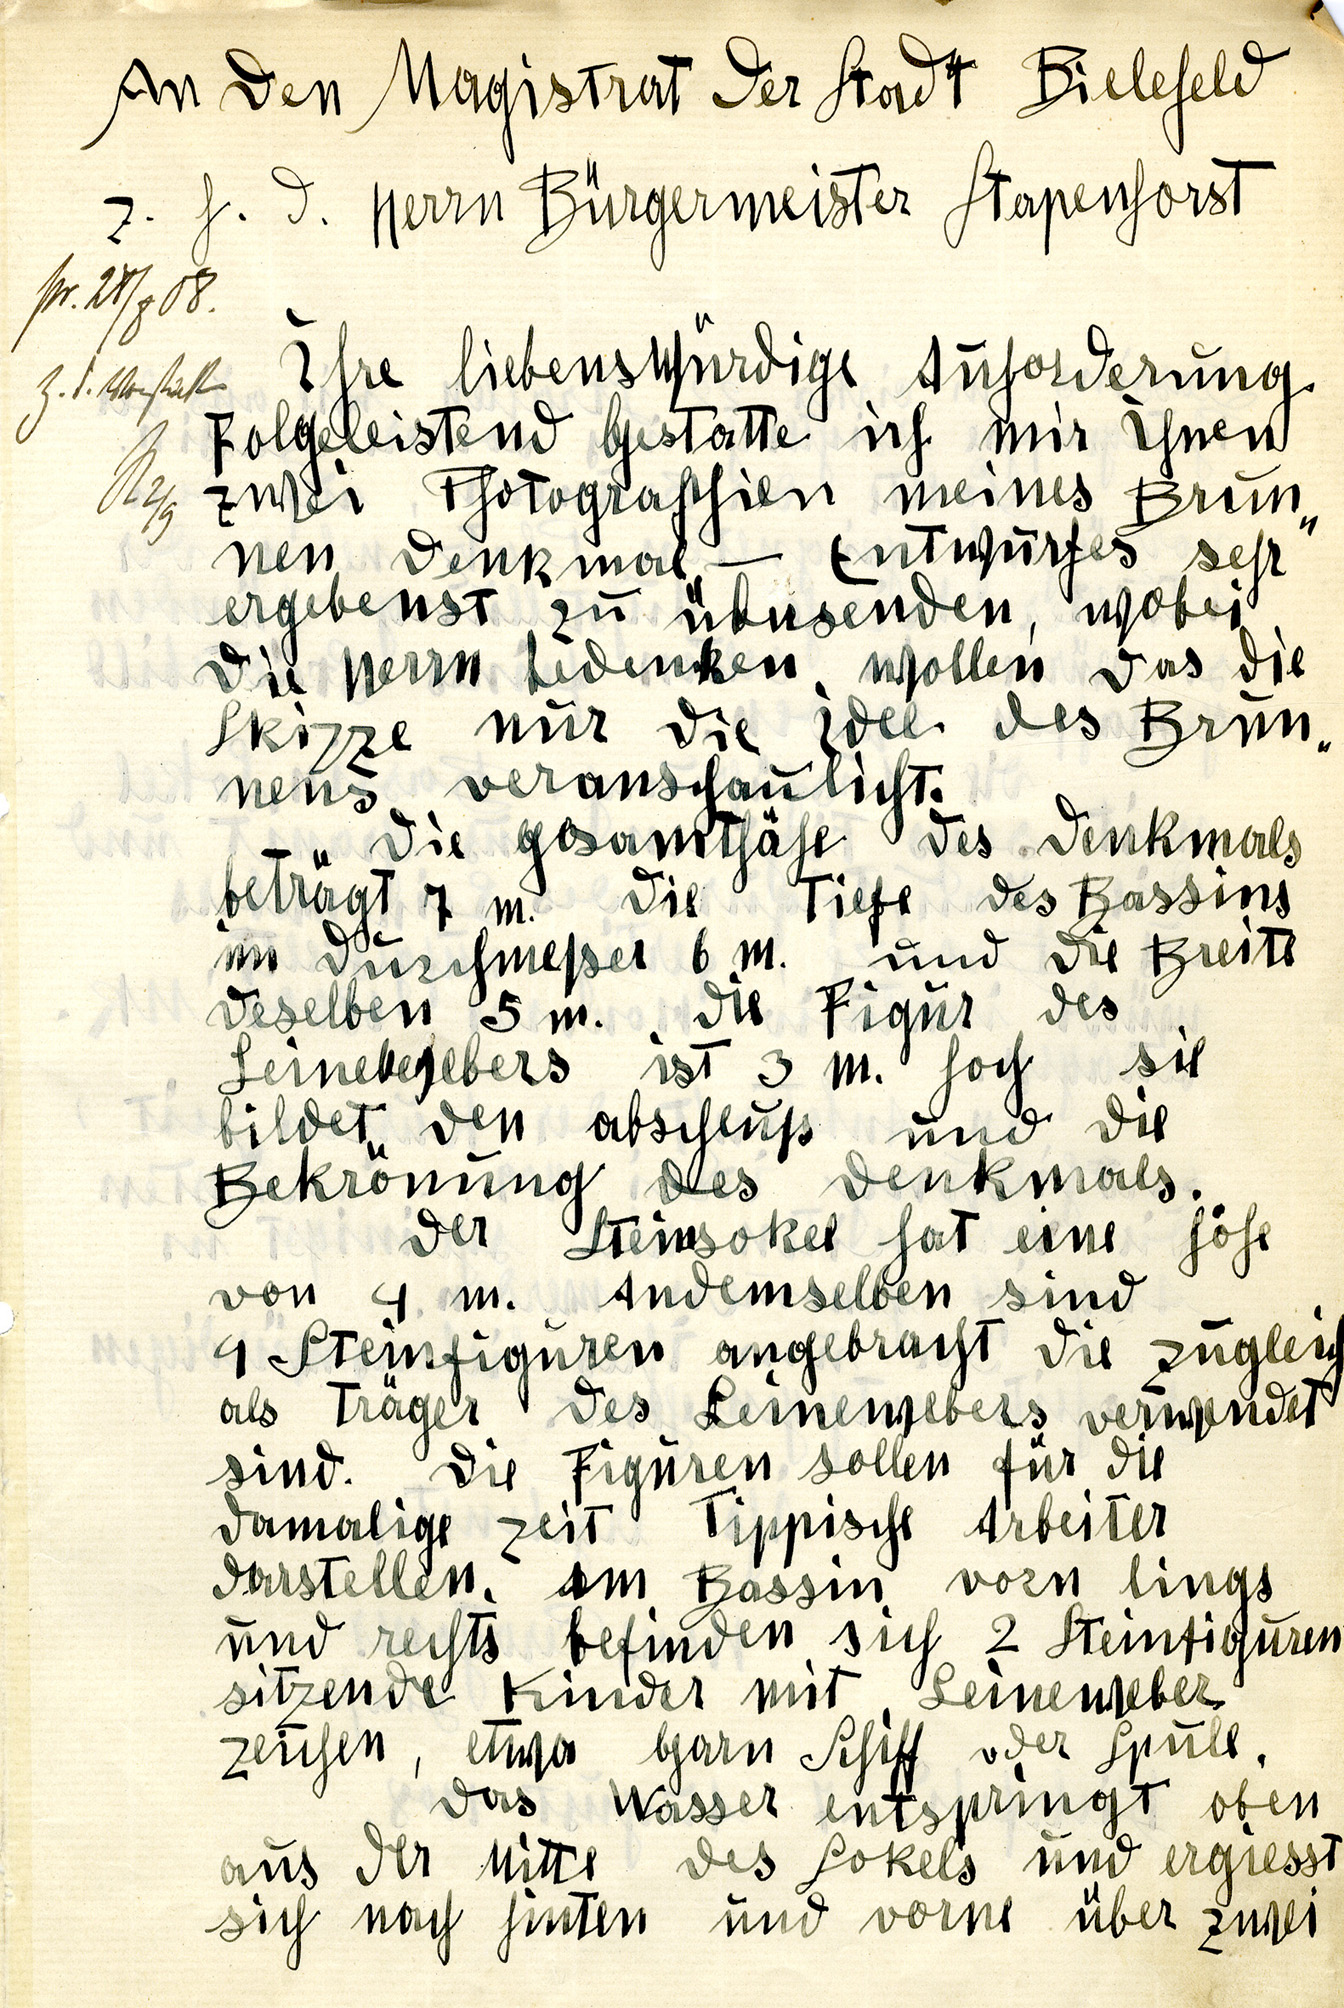 An den Magistrat der Stadt Bielefeld
z. H. d. Herrn Bürgermeister Stapenhorst
pr. 28/8 08.
z. d.
2/9
Ihre liebenswürdige Aufforderung
Folgeleistend gestatte ich mir Ihnen
zwei Photographien meines Brun„
nen Denkmal – Entwurfes sehr
ergebenst zu übersenden, wobei
die Herrn bedenken wollen das die
Skizze nur die Idee des Brun„
nens veranschaulicht.
Die gesamthöhe des Denkmals
beträgt 7 m. die Tiefe des Bassins
im Durchmeßer 6 m. und die Breite
deselben 5 m. die Figur des
Leinewebers ist 3 m. hoch sie
bildet den abschluß und die
Bekrönung des Denkmals.
Der Steinsokel hat eine höhe
von 4 m. Andemselben sind
4 Steinfiguren angebracht die zugleich
als Träger des Leinewebers verwendet
sind. Die Figuren sollen für die
damalige zeit Tippische Arbeiter
darstellen. Am Bassin vorn lings
und rechts befinden sich 2 Steinfiguren
sitzende Kinder mit Leineweber
zeichen, etwa Garn Schiff oder Spule.
Das Wasser entspringt oben
aus der Mitte des Sokels und ergiesst
sich nach hinten und vorne über zwei